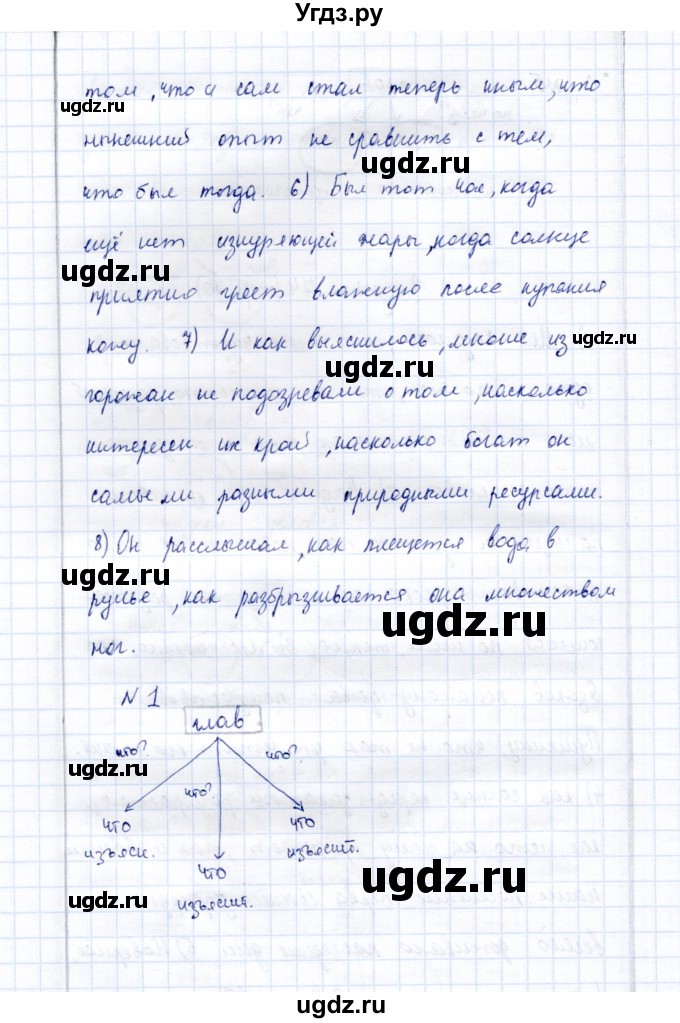 Угдз.ру
том, что и сам стал теперь иным, что
нынешний опыт не сравнить с тем,
что был тогда. 6) Был тот час, когда
ещё нет изнуряющей жары, когда солнце
приятно греет влажную после купания
кожу. 7) И как выяснилось, многие из
горожан не подозревали о том, насколько
интересен их край, насколько богат он
самыми разными природными ресурсами.
8) Он расслышал, как плещется вода в
ручье, как разбрызгивается она множеством
ног.
N 1
глав
что? что? что?
что что
изъясн. изъясит.
что
изъяснит.
ugdz.ru
ugdz.ru
ugdz.ru
ugdz.ru
ugdz.ru
ugdz.ru
ugdz.ru
ugdz.ru
ugdz.ru
ugdz.ru
ugdz.ru
ugdz.ru
ugdz.ru
ugdz.ru